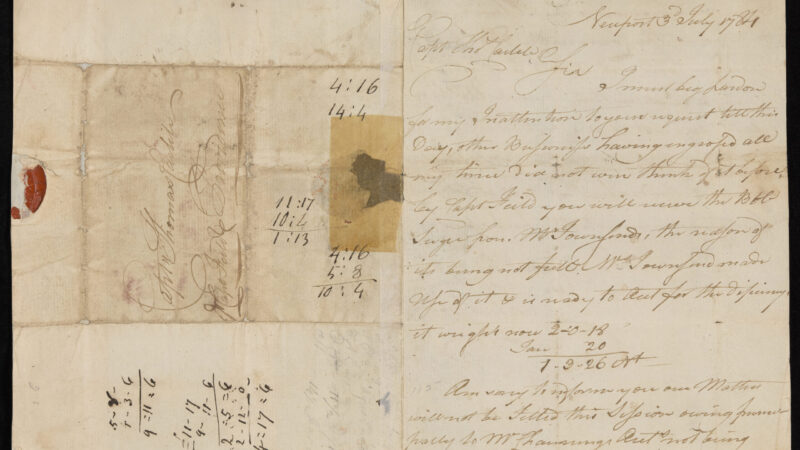 4:16
14:4
Capt Thomas
Providence
11:17
10:4
1:13
4:16
5:8
10:4
9=11=6
=11-17
9-11-6
2=5=6
2-12-0
=17=6
Newport 3d July 1784
Capt Thos
Sir
I must beg Pardon
for my Inattention to your request till this
Day, other Bussiness having engrosed all
my time did not even think of it before,
by Capt Feild you will receve the Bbl
Suger from Mr Townsends, the reason of
its being not full. Mr Townsend made
Use of it & is ready to Act for the
it weighs now 2-0-18
Tare 20
1-3-26 Nt
Am sorry to inform you our Matter
will not be Setled this Session owing
pally to Mr Actt not being